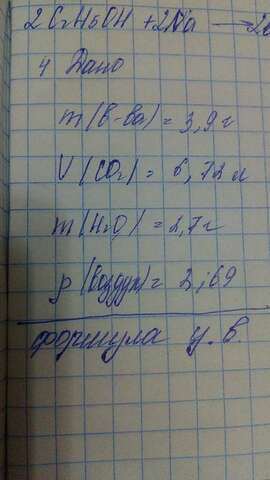 2C₂H₅OH + 2Na → 2
4 Дано
m(в-ва) = 3,9 г
V(CO₂) = 6,72 л
m(H₂O) = 2,7 г
p(воздух) = 2,69
формула у.в.